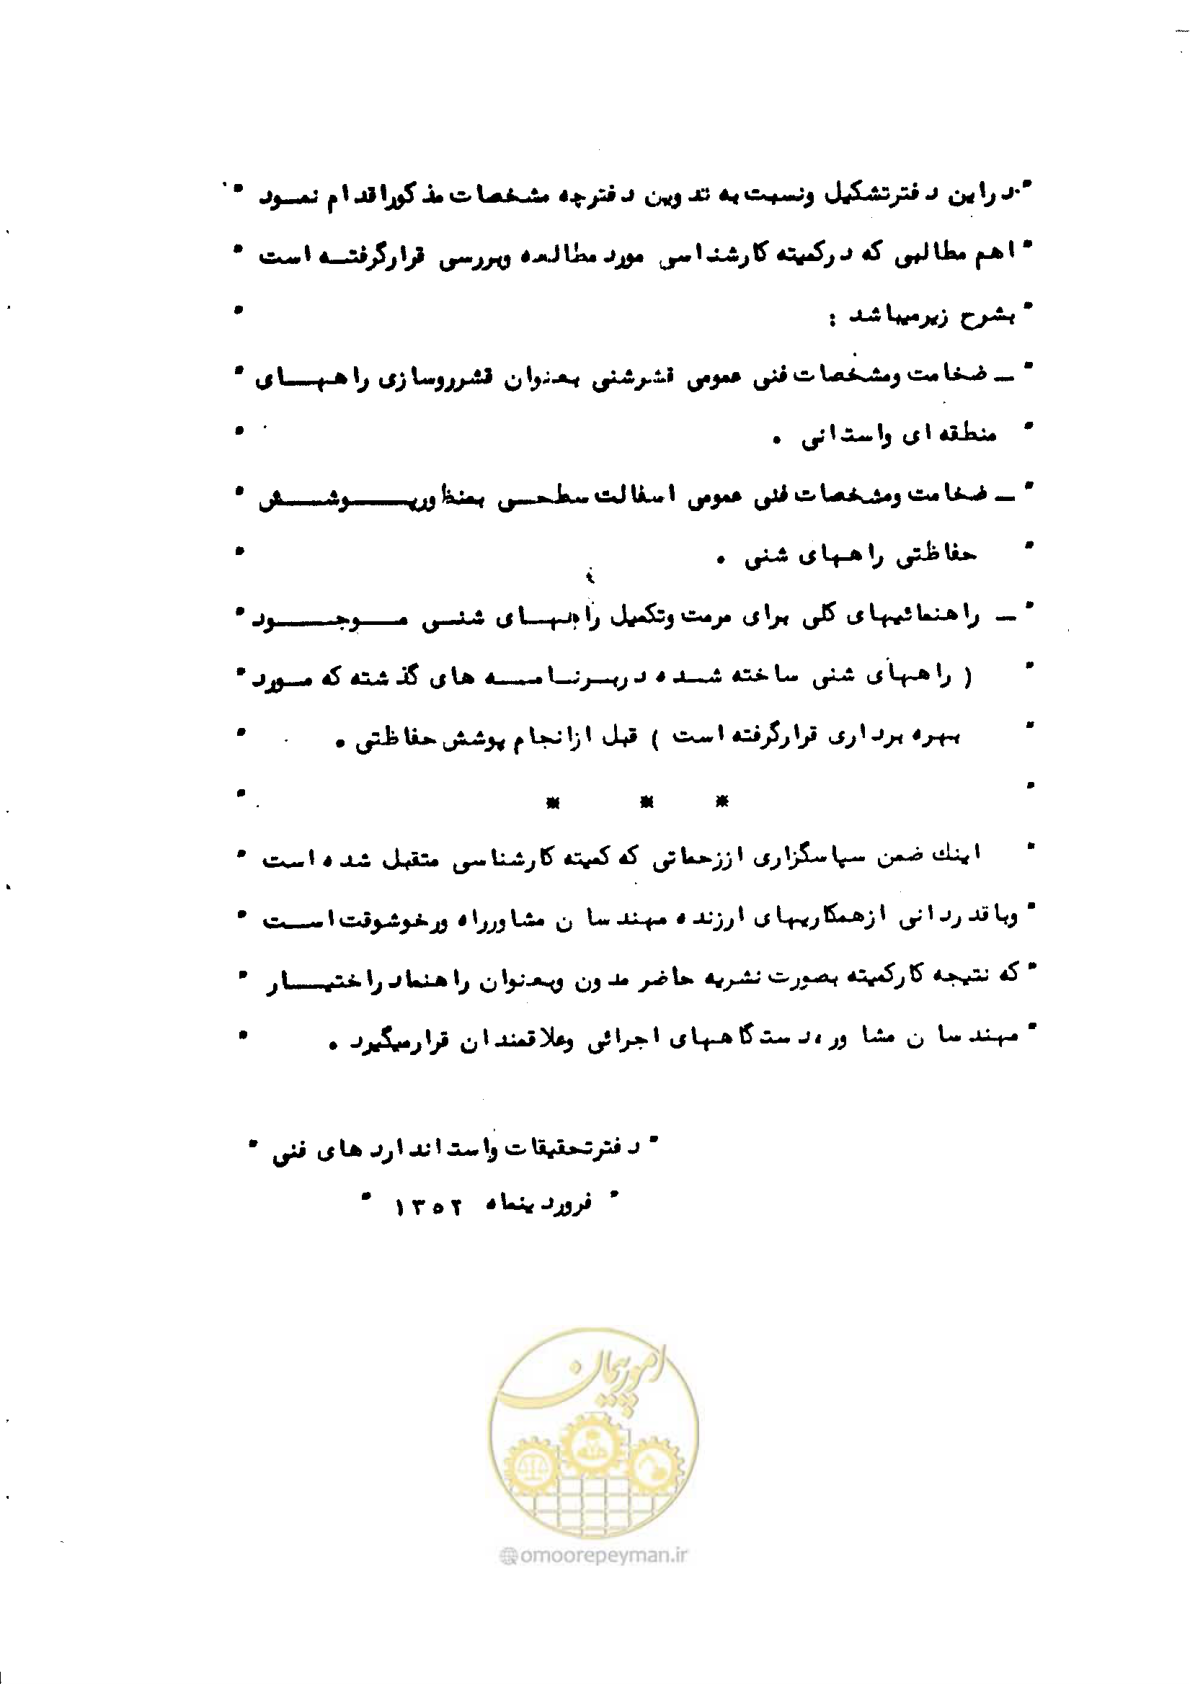 " در این دفتر تشکیل و نسبت به تدوین دفترچه مشخصات مذکور اقدام نمود "
" اهم مطالبی که در کمیته کارشناسی مورد مطالعه و بررسی قرار گرفته است "
" بشرح زیر میباشد : "
" ـ ضخامت و مشخصات فنی عمومی قشر شنی بعنوان قشر روسازی راههای "
" منطقه ای و استانی . "
" ـ ضخامت و مشخصات فنی عمومی اسفالت سطحی بمنظور پوشش "
" حفاظتی راههای شنی . "
" ـ راهنمائیهای کلی برای مرمت و تکمیل راههای شنی موجود "
" ( راههای شنی ساخته شده در برنامه های گذشته که مورد "
" بهره برداری قرار گرفته است ) قبل از انجام پوشش حفاظتی . "
" * * * "
" اینك ضمن سپاسگزاری از زحماتی که کمیته کارشناسی متقبل شده است "
" و با قدردانی از همکاریهای ارزنده مهندسان مشاور راه ور خوشوقت است "
" که نتیجه کار کمیته بصورت نشریه حاضر مدون و بعنوان راهنما در اختیار "
" مهندسان مشاور ، دستگاههای اجرائی و علاقمندان قرار میگیرد . "
" دفتر تحقیقات و استانداردهای فنی "
" فروردینماه ۱۳۵۲ "
امور پیمان
@omoorepeyman.ir